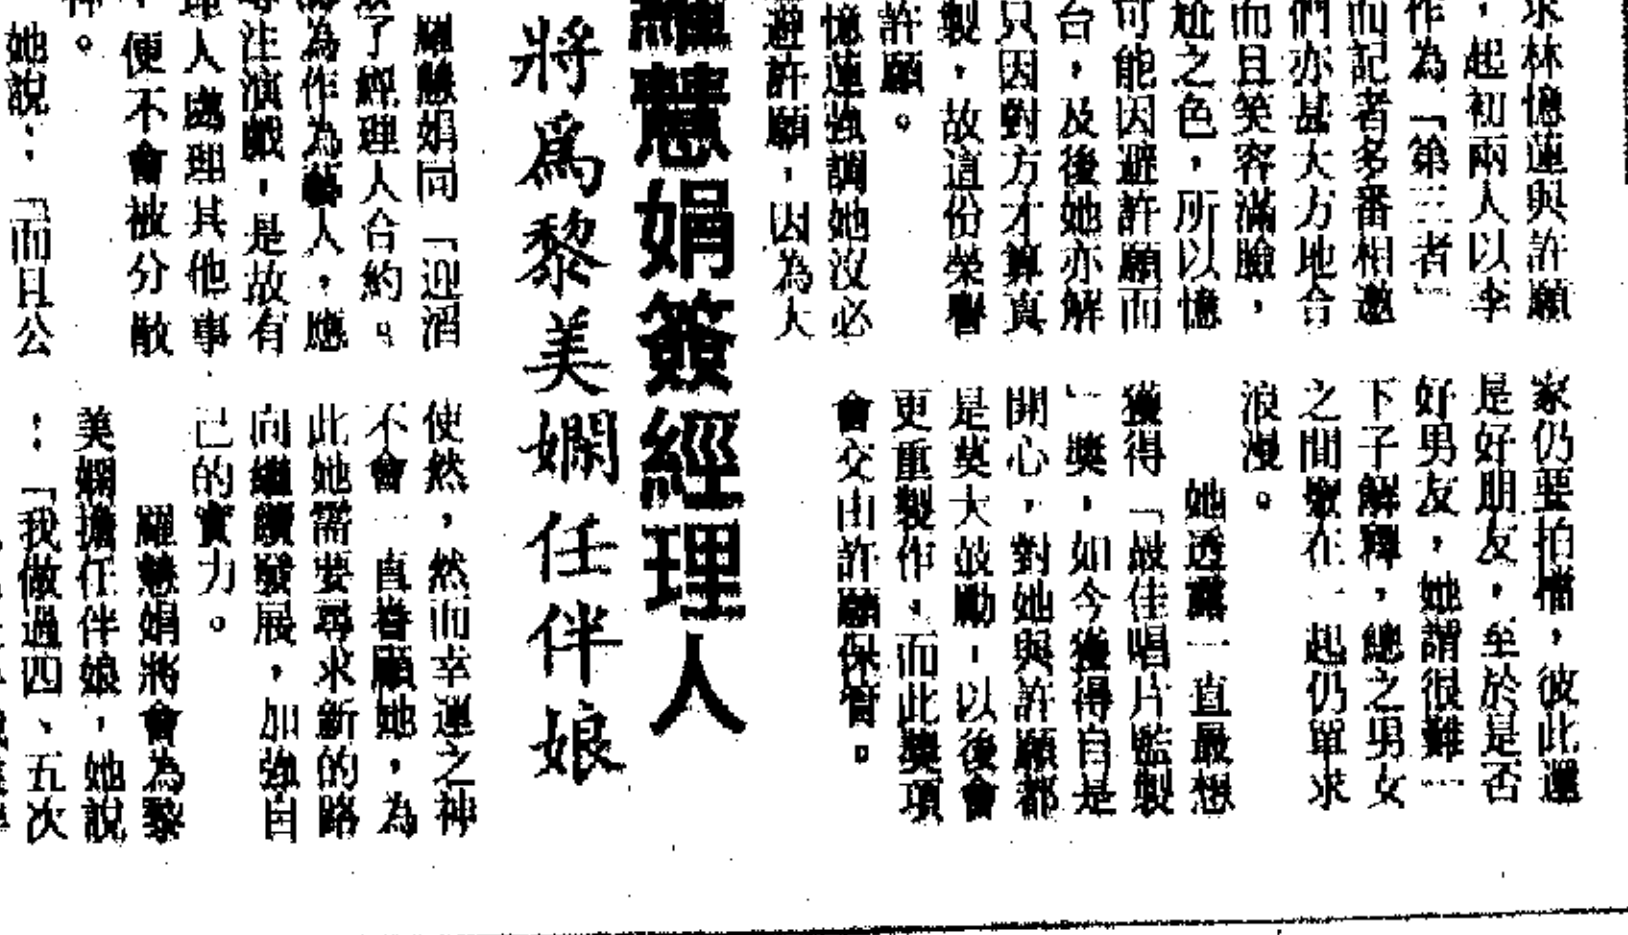 求林憶蓮與許願
，起初兩人以李
作為「第三者」
而記者多番相邀
們亦甚大方地合
而且笑容滿臉，
尬之色，所以憶
可能因避許願而
台，及後她亦解
只因對方才算真
製，故這份榮譽
許願。
憶蓮強調她沒必
避許願，因為大
家仍要拍檔，彼此還
是好朋友，至於是否
好男友，她謂很難一
下子解釋，總之男女
之間墩在一起仍單求
浪漫。
她透露一直最想
獲得「最佳唱片監製
」獎，如今獲得自是
開心，對她與許願都
是莫大鼓勵，以後會
更重製作，而此獎項
會交由許願保管。
羅慧娟簽經理人
將爲黎美嫻任伴娘
羅慧娟同「迎湣
了經理人合約。
為作為藝人，應
注演戲，是故有
理人處理其他事
，便不會被分散
神。
她說：「而且公
使然，然而幸運之神
不會一直眷顧她，為
此她需要尋求新的路
向繼續發展，加強自
己的實力。
羅慧娟將會為黎
美嫻擔任伴娘，她說
：「我做過四、五次